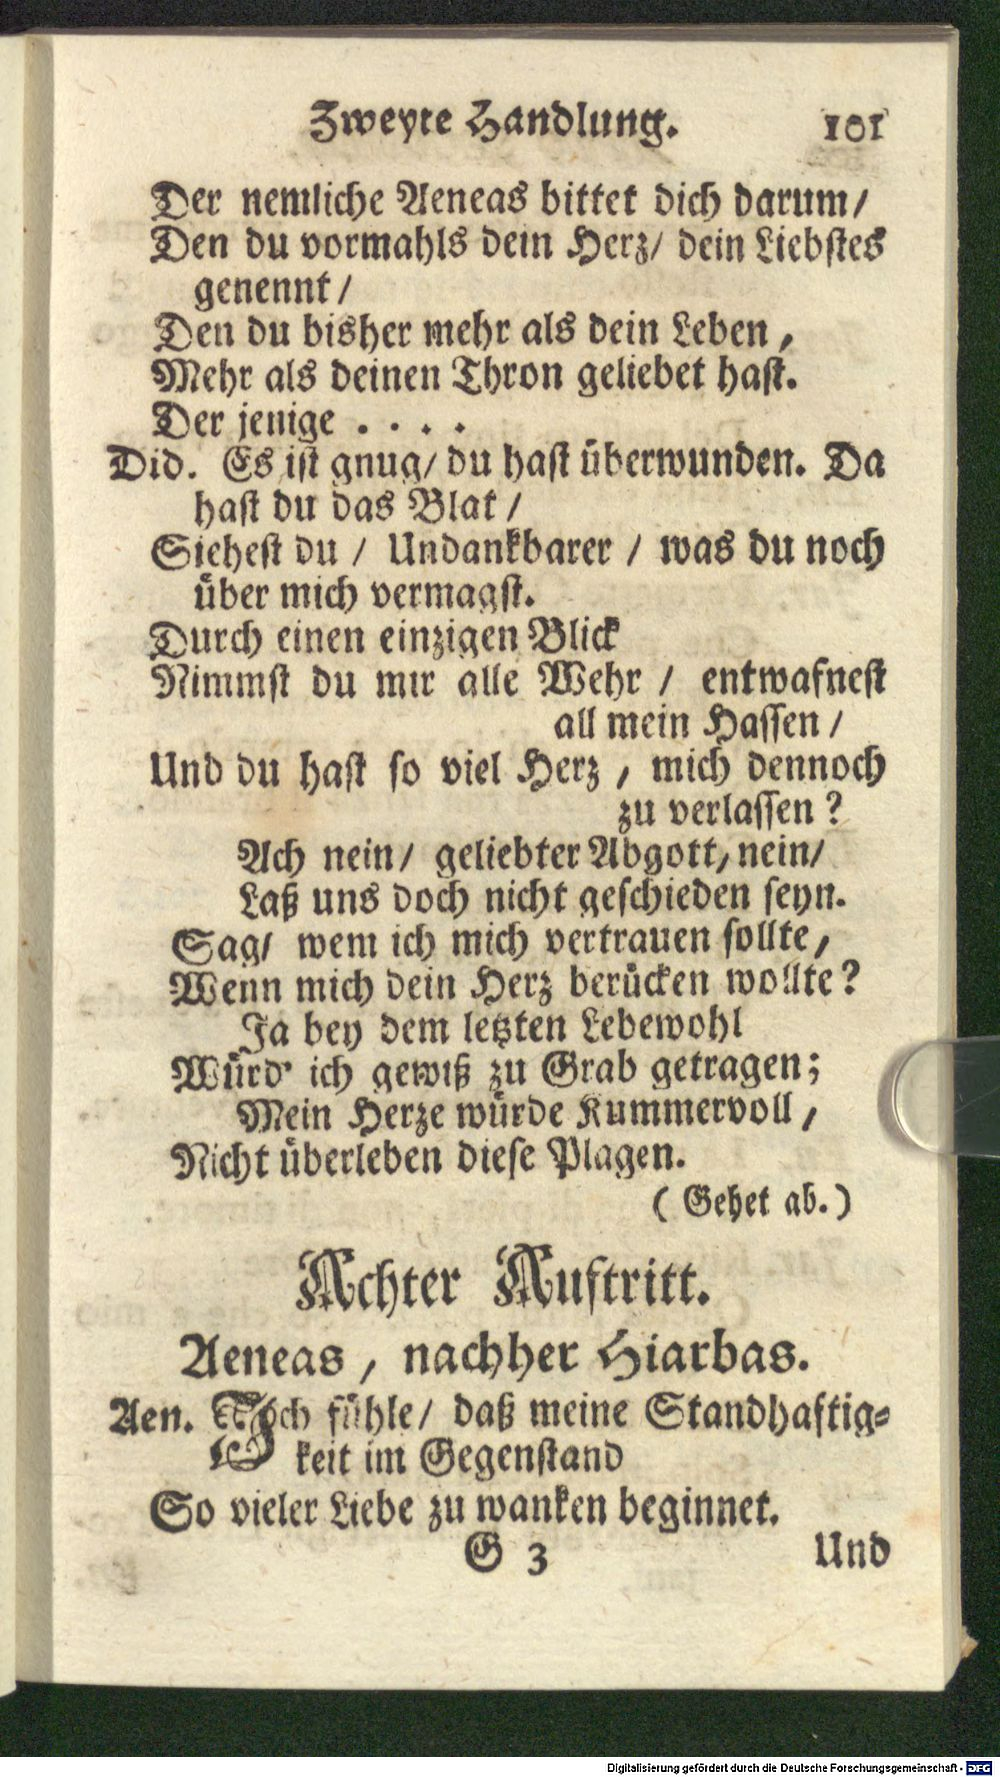 Zweyte Handlung. 101
Der nemliche Aeneas bittet dich darum/
Den du vormahls dein Herz/ dein Liebstes
genennt /
Den du bisher mehr als dein Leben,
Mehr als deinen Thron geliebet hast.
Der jenige . . . .
Did. Es ist gnug/ du hast überwunden. Da
hast du das Blat /
Siehest du / Undankbarer / was du noch
über mich vermagst.
Durch einen einzigen Blick
Nimmst du mir alle Wehr / entwafnest
all mein Hassen /
Und du hast so viel Herz , mich dennoch
zu verlassen ?
Ach nein/ geliebter Abgott, nein/
Laß uns doch nicht geschieden seyn.
Sag/ wem ich mich vertrauen sollte,
Wenn mich dein Herz berücken wollte?
Ja bey dem letzten Lebewohl
Würd' ich gewiß zu Grab getragen;
Mein Herze würde Kummervoll ,
Nicht überleben diese Plagen.
( Gehet ab. )
Achter Auftritt.
Aeneas , nachher Hiarbas.
Aen. Ich fühle/ daß meine Standhaftig=
keit im Gegenstand
So vieler Liebe zu wanken beginnet.
G 3 Und
Digitalisierung gefördert durch die Deutsche Forschungsgemeinschaft - DFG